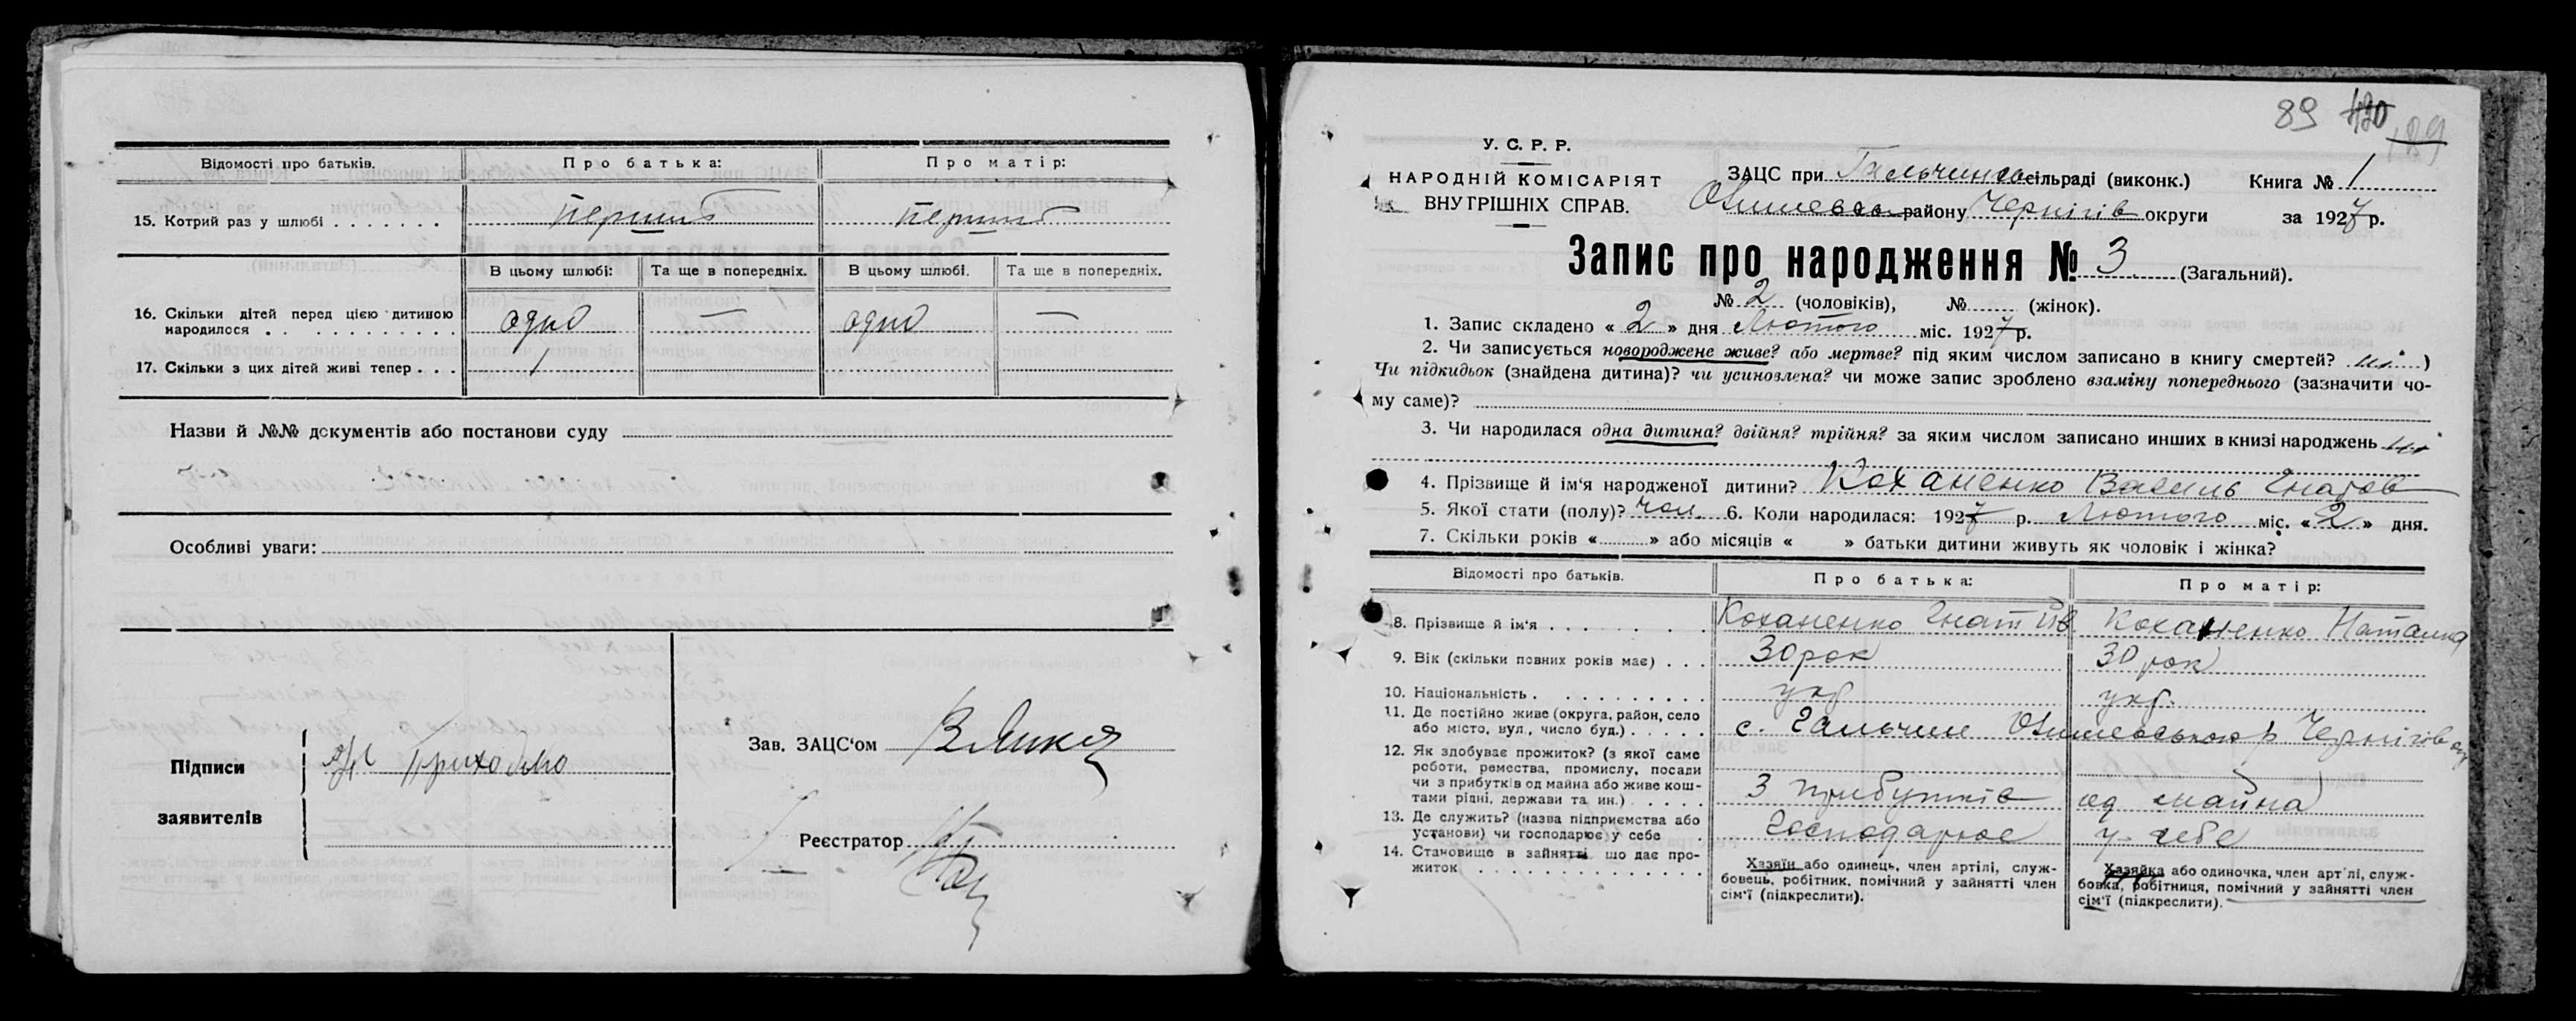 Відомості про батьків. Про батька: Про матір:
15. Котрий раз у шлюбі . . . . . . . перший перший
В цьому шлюбі: Та ще в попередніх. В цьому шлюбі. Та ще в попередніх.
16. Скільки дітей перед цією дитиною
народилося . . . . . . . . . . . одно — одно —
17. Скільки з цих дітей живі тепер . . . 1
Назви й №№ документів або постанови суду
Особливі уваги:
Підписи
заявителів
Приходько
Зав. ЗАЦС'ом
Реєстратор
89 120 189
У. С. Р. Р.
НАРОДНІЙ КОМІСАРІЯТ
ВНУТРІШНІХ СПРАВ.
ЗАЦС при сільраді (виконк.) Книга № 1
району Чернігів округи за 1927 р.
Запис про народження № 3 (Загальний).
№ 2 (чоловіків), № (жінок).
1. Запис складено « 2 » дня Лютого міс. 1927 р.
2. Чи записується новороджене живе? або мертве? під яким числом записано в книгу смертей? ні )
Чи підкидьок (знайдена дитина)? чи усиновлена? чи може запис зроблено взаміну попереднього (зазначити чо-
му саме)?
3. Чи народилася одна дитина? двійня? трійня? за яким числом записано инших в книзі народжень ні
4. Прізвище й ім'я народженої дитини? Коханенко Василь Гнатов
5. Якої стати (полу)? чол. 6. Коли народилася: 1927 р. Лютого міс. « 2 » дня.
7. Скільки років « » або місяців « » батьки дитини живуть як чоловік і жінка?
Відомості про батьків. Про батька: Про матір:
8. Прізвище й ім'я . . . . . . . . Коханенко Гнат Коханенко Наталка
9. Вік (скільки повних років має) . . . 30 рок 30 рок
10. Національність . . . . . . . . . . укр. укр.
11. Де постійно живе (округа, район, село
або місто, вул., число буд.) . . . . . с. Гальчин р Чернігів
12. Як здобуває прожиток? (з якої саме
роботи, ремества, промислу, посади
чи з прибутків од майна або живе кош-
тами рідні, держави та ин.) . . . . З прибутків од майна
13. Де служить? (назва підприємства або
установи) чи господарює у себе . Господарює у себе
14. Становище в зайнятті що дає про-
житок . . . . . . . . . . . . . .
Хазяїн або одинець, член артілі, служ-
бовець, робітник, помічний у зайнятті член
сім'ї (підкреслити).
Хазяйка або одиночка, член арт'лі, служ-
бовка, робітниця, помічний у зайнятті член
сім'ї (підкреслити).